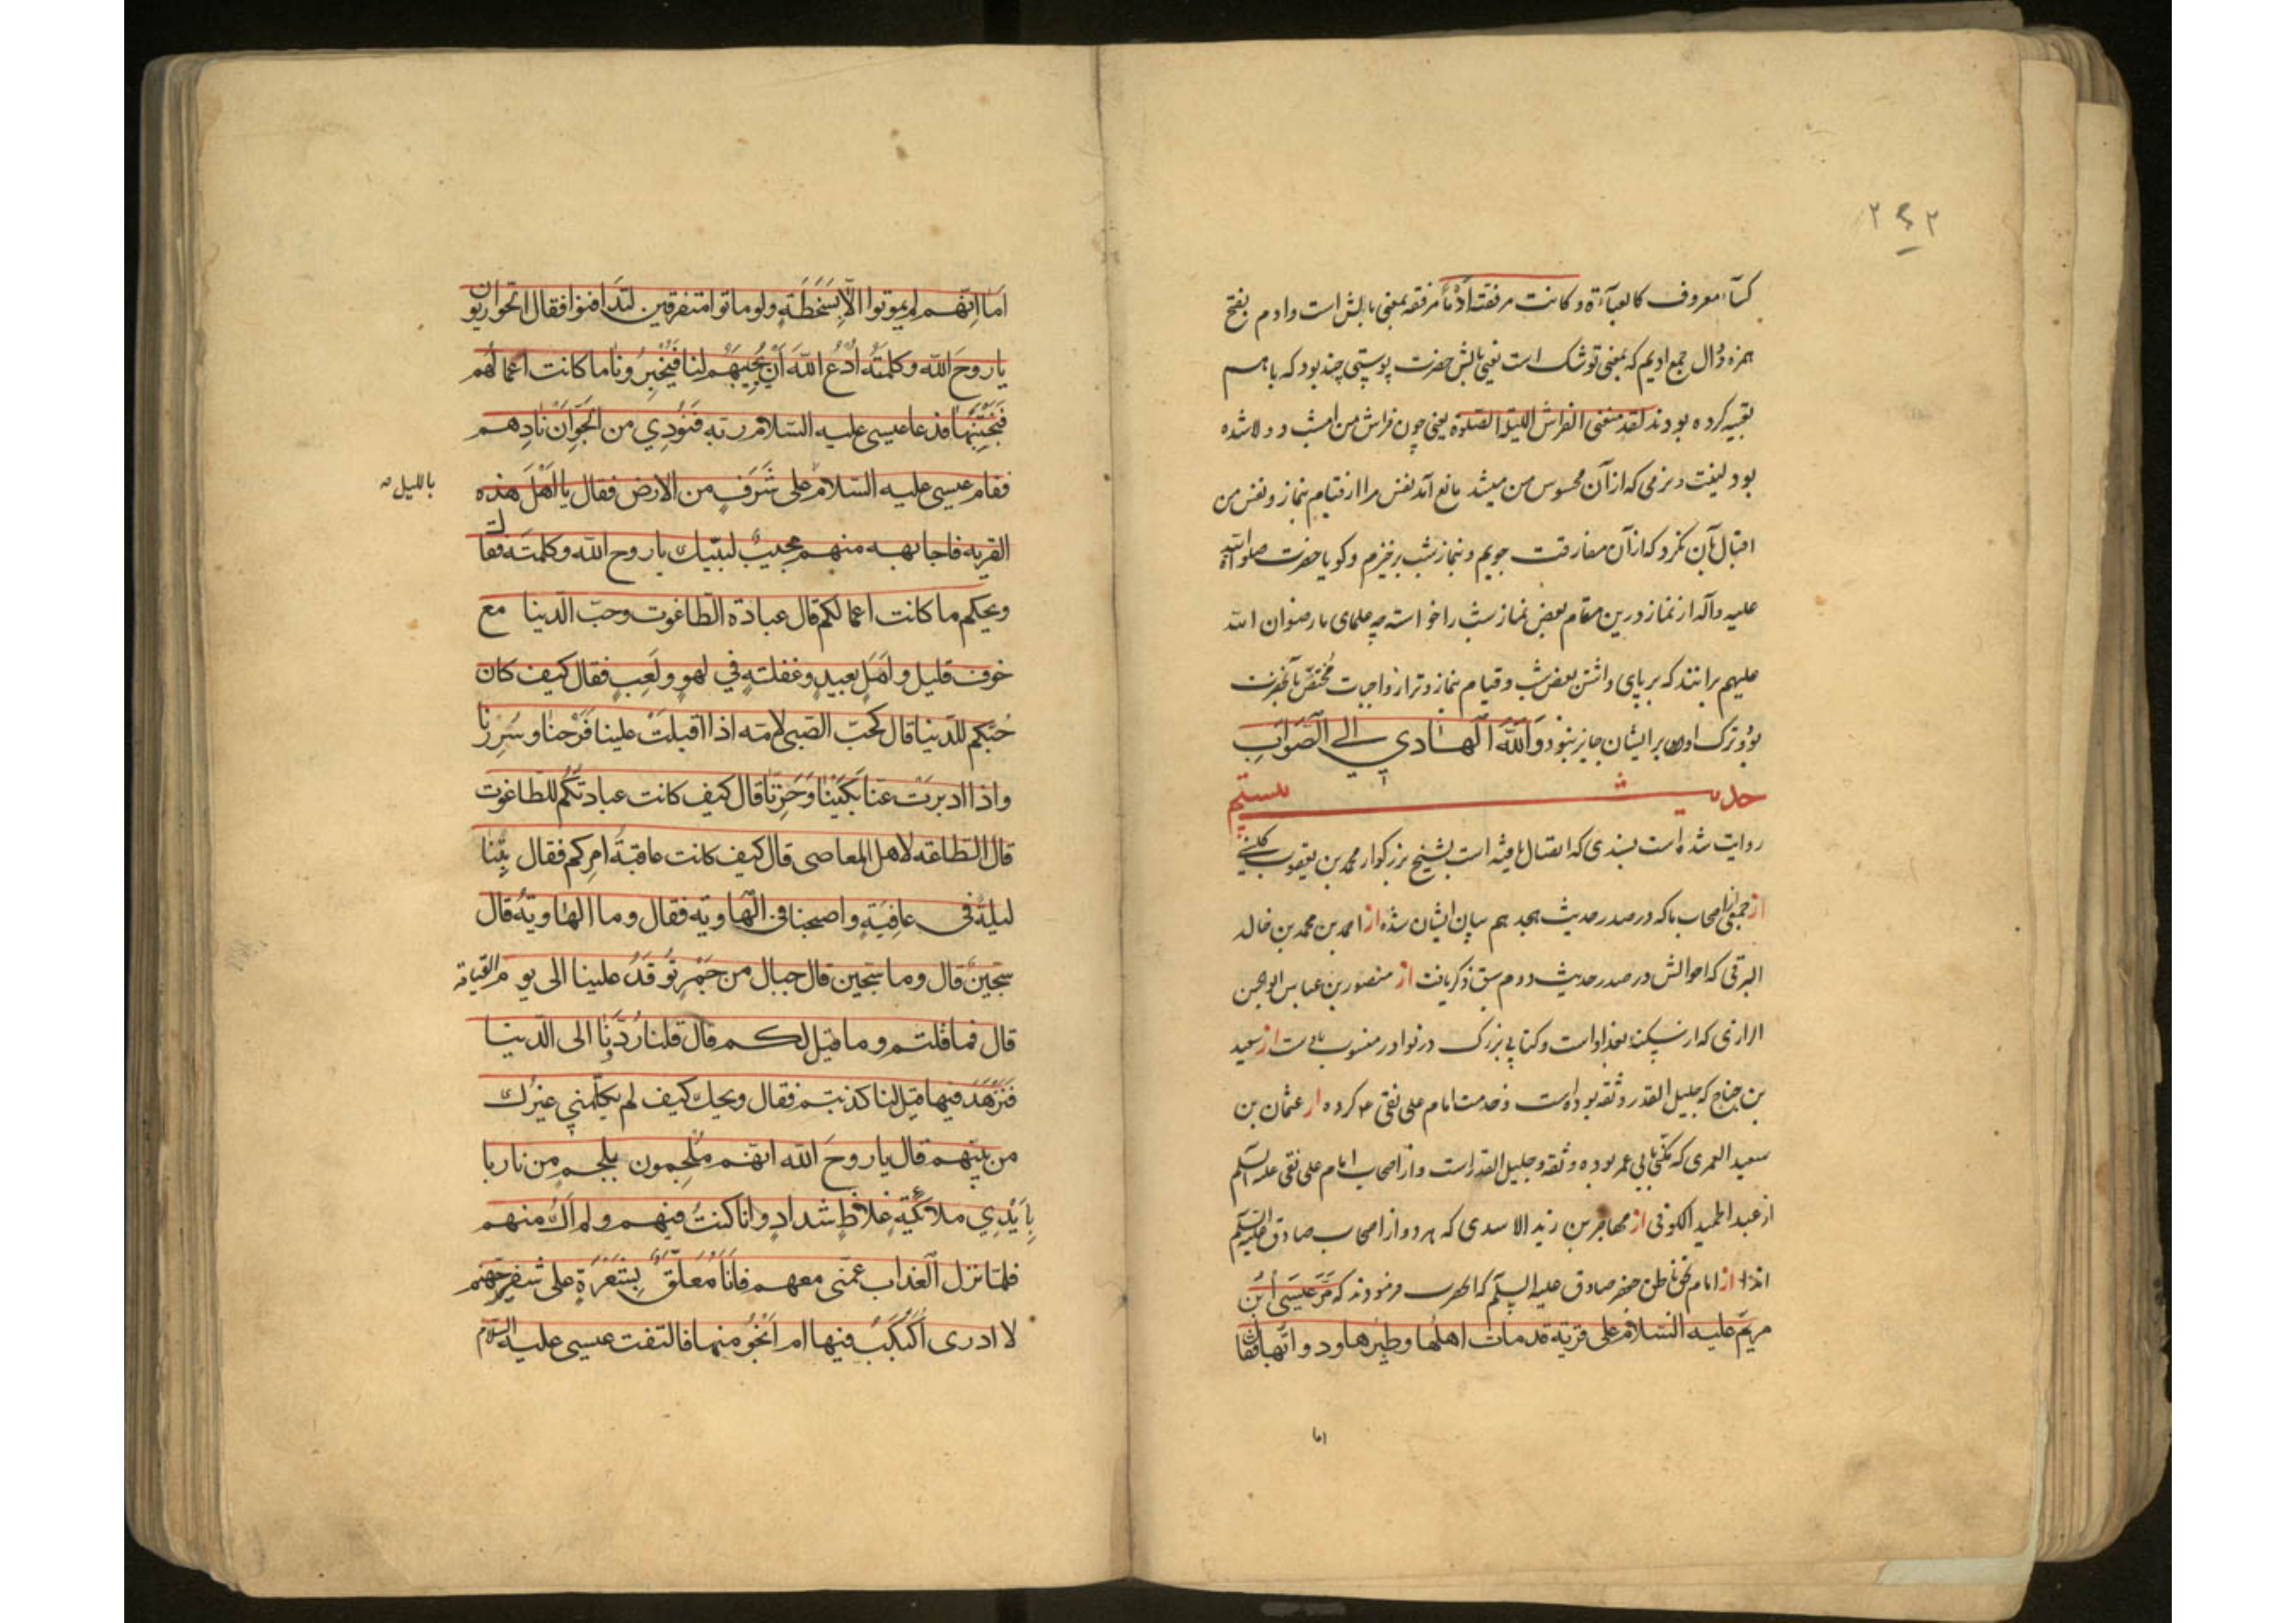 ۲۴۲
کسآء معروف کالعبآءة و کانت مرفقته اَدَماً مرفقه بمعنی بالش است و ادم بفتح
همزه و دال جمع ادیم که بمعنی توشک است یعنی بالش حضرت پوستی چند بود که باهم
تعبیه کرده بودند لقد منعنی الفراش اللیلة الصلوة یعنی چون فراش من امشب دو لا شده
بود لینت و نرمی که از آن محسوس من میشد مانع آمد نفس مرا از قیام بنماز و نفس من
اقبال بآن نکرد که از آن مفارقت جویم و بنماز شب برخیزم و کویا حضرت صلوات الله
علیه و آله از نماز درین مقام بعض نماز شب را خواسته چه علمای ما رضوان الله
علیهم برانند که بر پای داشتن بعض شب و قیام بنماز وتر از واجبات مختص بآنحضرت
بود و ترک اون بر ایشان جایز نبود وَاللّٰهُ الْهَادِي إِلَى الصَّوَابِ
حدیث بیستم
روایت شده است بسندی که اتصال یافته است بشیخ بزرکوار محمد بن یعقوب کلینی
از جمعی از اصحاب ما که در صدر حدیث هجدهم بیان ایشان شده از احمد بن محمد بن خالد
البرقی که احوالش در صدر حدیث دوم سبق ذکر یافت از منصور بن عباس ابو الحسن
الرازی که از سکنه بغداد است و کتابی بزرک در نوادر منسوب باوست از سعید
بن جناح که جلیل القدر و ثقه بوده است و خدمت امام علی نقی ع کرده از عثمان بن
سعید العمری که مکنی بابی عمر بوده و ثقه و جلیل القدر است و از اصحاب امام علی نقی علیه السلم
از عبد الحمید الکوفی از مهاجر بن زید الاسدی که هر دو از اصحاب صادق علیه السلم
اند از امام بحق ناطق جعفر صادق علیه السلم که الحضرت فرمودند که مَرَّ عِیسَی ابْنُ
مریم علیه السّلام علی قریة قد مات اهلها و طیرها و دوابّها فقال
اما
اَما اِنّهم لم یموتوا الّا بِسَخَطَةٍ ولو ماتوا متفرقین لتَدافنوا فقال الحواریون
یا روحَ الله وکلمتَه اُدْعُ اللهَ اَنْ یُحْیِیَهُم لنا فَیُخْبِرُونا ما کانت اعمالهم
فَنَجْتَنِبُها فدعا عیسی علیه السّلام ربّه فَنُودِي من الجَوِّ اَنْ نادِهم
فقام عیسی علیه السّلام علی شَرَفٍ من الارض فقال یا اَهْلَ هذه
باللیل صح
القریه فاجابه منهم مجیبٌ لبّیك یا روح الله وکلمتَه فقال
ویحکم ما کانت اعمالکم قال عبادة الطّاغوت وحبّ الدّنیا مع
خوف قلیل و اَمَلٍ بعیدٍ و غفلتةٍ في لهوٍ و لَعِبٍ فقال کیف کان
حُبّکم للدّنیا قال کحبّ الصّبی لامّه اذا اقبلتْ علینا فَرَحنا و سُرِرنا
واذا ادبرتْ عنّا بَکَیْنا وَحَزِنّا قال کیف کانت عبادتکم للطّاغوت
قال الطّاعة لاهل المعاصی قال کیف کانت عاقبة امرکم فقال بِتْنا
لیلةً فی عافیةٍ و اصبحنا فی الهاویة فقال وما الهاویة قال
سجّین قال وما سجّین قال جبال من جَمْرٍ توقَدُ علینا الی یوم القیامة
قال فما قلتم وما قیل لکم قال قلنا رُدَّنا الی الدّنیا
فَنَزْهَدَ فیها قیل لنا کذبتم فقال ویحك کیف لم یکلّمني غیرك
من بینهم قال یا روحَ الله انّهم مُلْجَمون بلجم من نار با
بِاَیْدِي ملائکةٍ غلاظٍ شدادٍ وانا کنتُ فیهم ولم اَكُ منهم
فلمّا نزل العذاب عمّنی معهم فانا مُعَلَّقٌ بِشَعْرَةٍ علی شفیر جهنّم
لا ادری اُکَبْکَبُ فیها ام اَنْجُو منها فالتفت عیسی علیه السلام